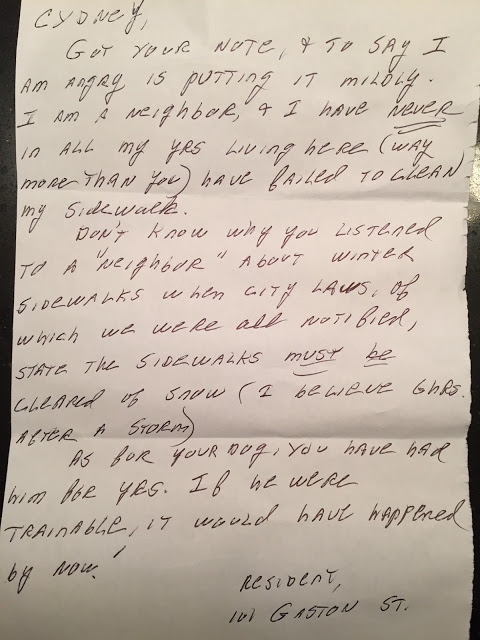 CYDNEY,
GOT YOUR NOTE, & TO SAY I
AM ANGRY IS PUTTING IT MILDLY.
I AM A NEIGHBOR, & I HAVE NEVER
IN ALL MY YRS LIVING HERE (WAY
MORE THAN YOU) HAVE FAILED TO CLEAN
MY SIDEWALK.
DON'T KNOW WHY YOU LISTENED
TO A "NEIGHBOR" ABOUT WINTER
SIDEWALKS WHEN CITY LAWS, OF
WHICH WE WERE ALL NOTIFIED,
STATE THE SIDEWALKS MUST BE
CLEARED OF SNOW (I BELIEVE 6HRS.
AFTER A STORM)
AS FOR YOUR DOG, YOU HAVE HAD
HIM FOR YRS. IF HE WERE
TRAINABLE, IT WOULD HAVE HAPPENED
BY NOW!
RESIDENT,
101 GASTON ST.